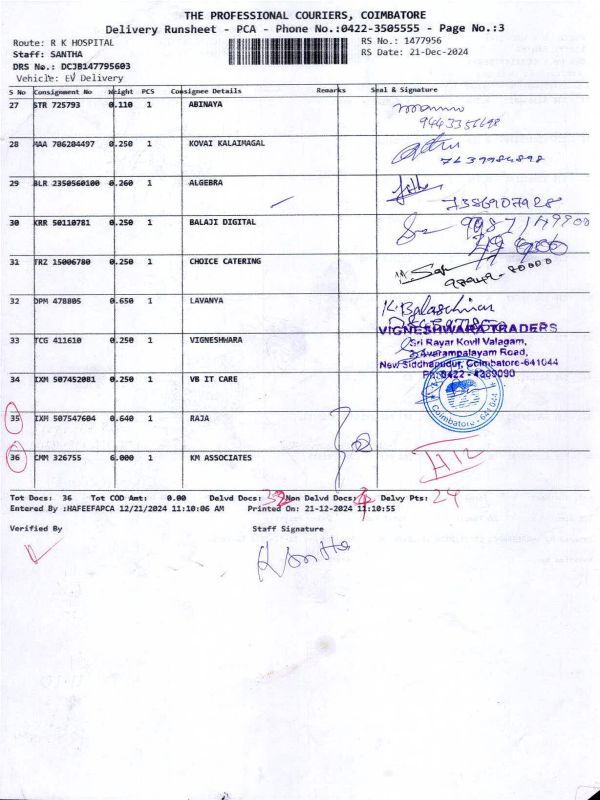 THE PROFESSIONAL COURIERS, COIMBATORE
Delivery Runsheet - PCA - Phone No.:0422-3505555 - Page No.:3
Route: R K HOSPITAL RS No.: 1477956
Staff: SANTHA RS Date: 21-Dec-2024
DRS No.: DCJB147795603
Vehicle: EV Delivery
S No Consignment No Weight PCS Consignee Details Remarks Seal & Signature
27 STR 725793 0.110 1 ABINAYA
28 MAA 706204497 0.250 1 KOVAI KALAIMAGAL
29 BLR 2350560100 0.260 1 ALGEBRA
30 KRR 50110781 0.250 1 BALAJI DIGITAL
31 TRZ 15006780 0.250 1 CHOICE CATERING
32 DPM 478805 0.650 1 LAVANYA
K.Balaschinar
VIGNESHWARA TRADERS
33 TCG 411610 0.250 1 VIGNESHWARA
Sri Rayar Kovil Valagam,
2, Avarampalayam Road,
New Siddhapudur, Coimbatore-641044
Ph:0422 - 4389090
34 IXM 507452081 0.250 1 VB IT CARE
Coimbatore - 641 044
35 IXM 507547604 0.640 1 RAJA
36 CMM 326755 6.000 1 KM ASSOCIATES
Tot Docs: 36 Tot COD Amt: 0.00 Delvd Docs: Non Delvd Docs: Delvy Pts: 24
Entered By :HAFEEFAPCA 12/21/2024 11:10:06 AM Printed On: 21-12-2024 11:10:55
Verified By Staff Signature